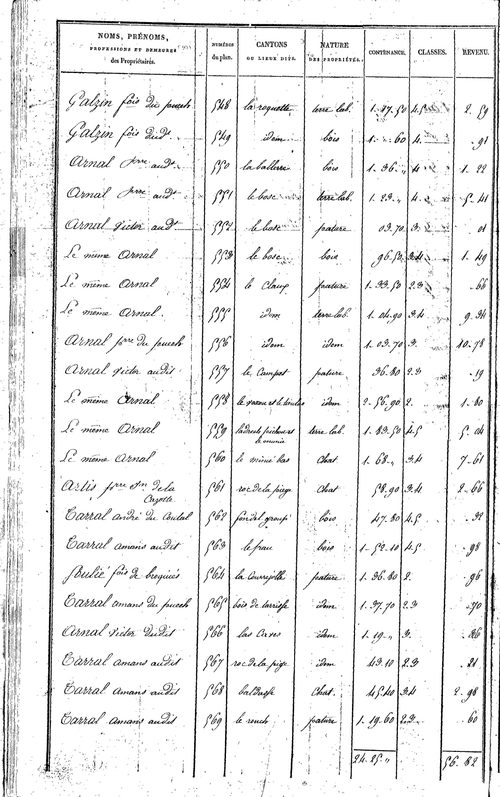 NOMS, PRÉNOMS, PROFESSIONS ET DEMEURES des Propriétaires. NUMÉROS du plan. CANTONS OU LIEUX DITS. NATURE DES PROPRIÉTÉS. CONTENANCE. CLASSES. REVENU.
Galzin fois du puech 548 la roquette terre lab. 1. 37. 50 4.5 2. 59
Galzin fois dudt 549 idem bois 1. 60 4. 91
Arnal pre audt 550 bois 1. 36. „ 4 1. 22
Arnal pre audt 551 le bosc terre lab. 1. 23. „ 4. 5. 41
Arnal victor audt 552 le bosc pature 03. 70. 3. 01
Le même Arnal 553 le bosc bois 96. 50 3.4 1. 49
Le même Arnal 554 le Claux pature 1. 33. 50 2.3 66
Le même Arnal. 555 idem terre lab. 1. 04. 90 3.4 9. 34
Arnal pre du puech 556 idem idem 1. 03. 70 3. 10. 78
Arnal victor audit 557 le Campet pature 36. 80 2.3 19
Le même Arnal 558 idem 2. 56. 90 2. 1. 80
Le même Arnal 559 terre lab. 1. 83. 50 4.5 5. 04
Le même Arnal 560 le bas Chat 1. 68. „ 3.4 7. 61
Artis pre jn de la Cazotte 561 roc de la pize Chat 58. 90 3.4 2. 66
Carral andré du 562 bois 47. 80 4.5 32
Carral amans audit 563 le frau bois 1. 52. 10 4.5 98
fois de 564 la pature 1. 36. 80 2. 96
Carral amans du puech 565 bois de idem 1. 37. 70 2.3 70
Arnal victor dudit 566 las idem 1. 19. „ 3. 26
Carral amans audit 567 roc de la pize idem 43. 10 2.3 21
Carral amans audit 568 Chat. 45. 40 3.4 2. 98
Carral amans audit 569 le pature 1. 19. 60 2.3 60
24. 25. „ 56. 82